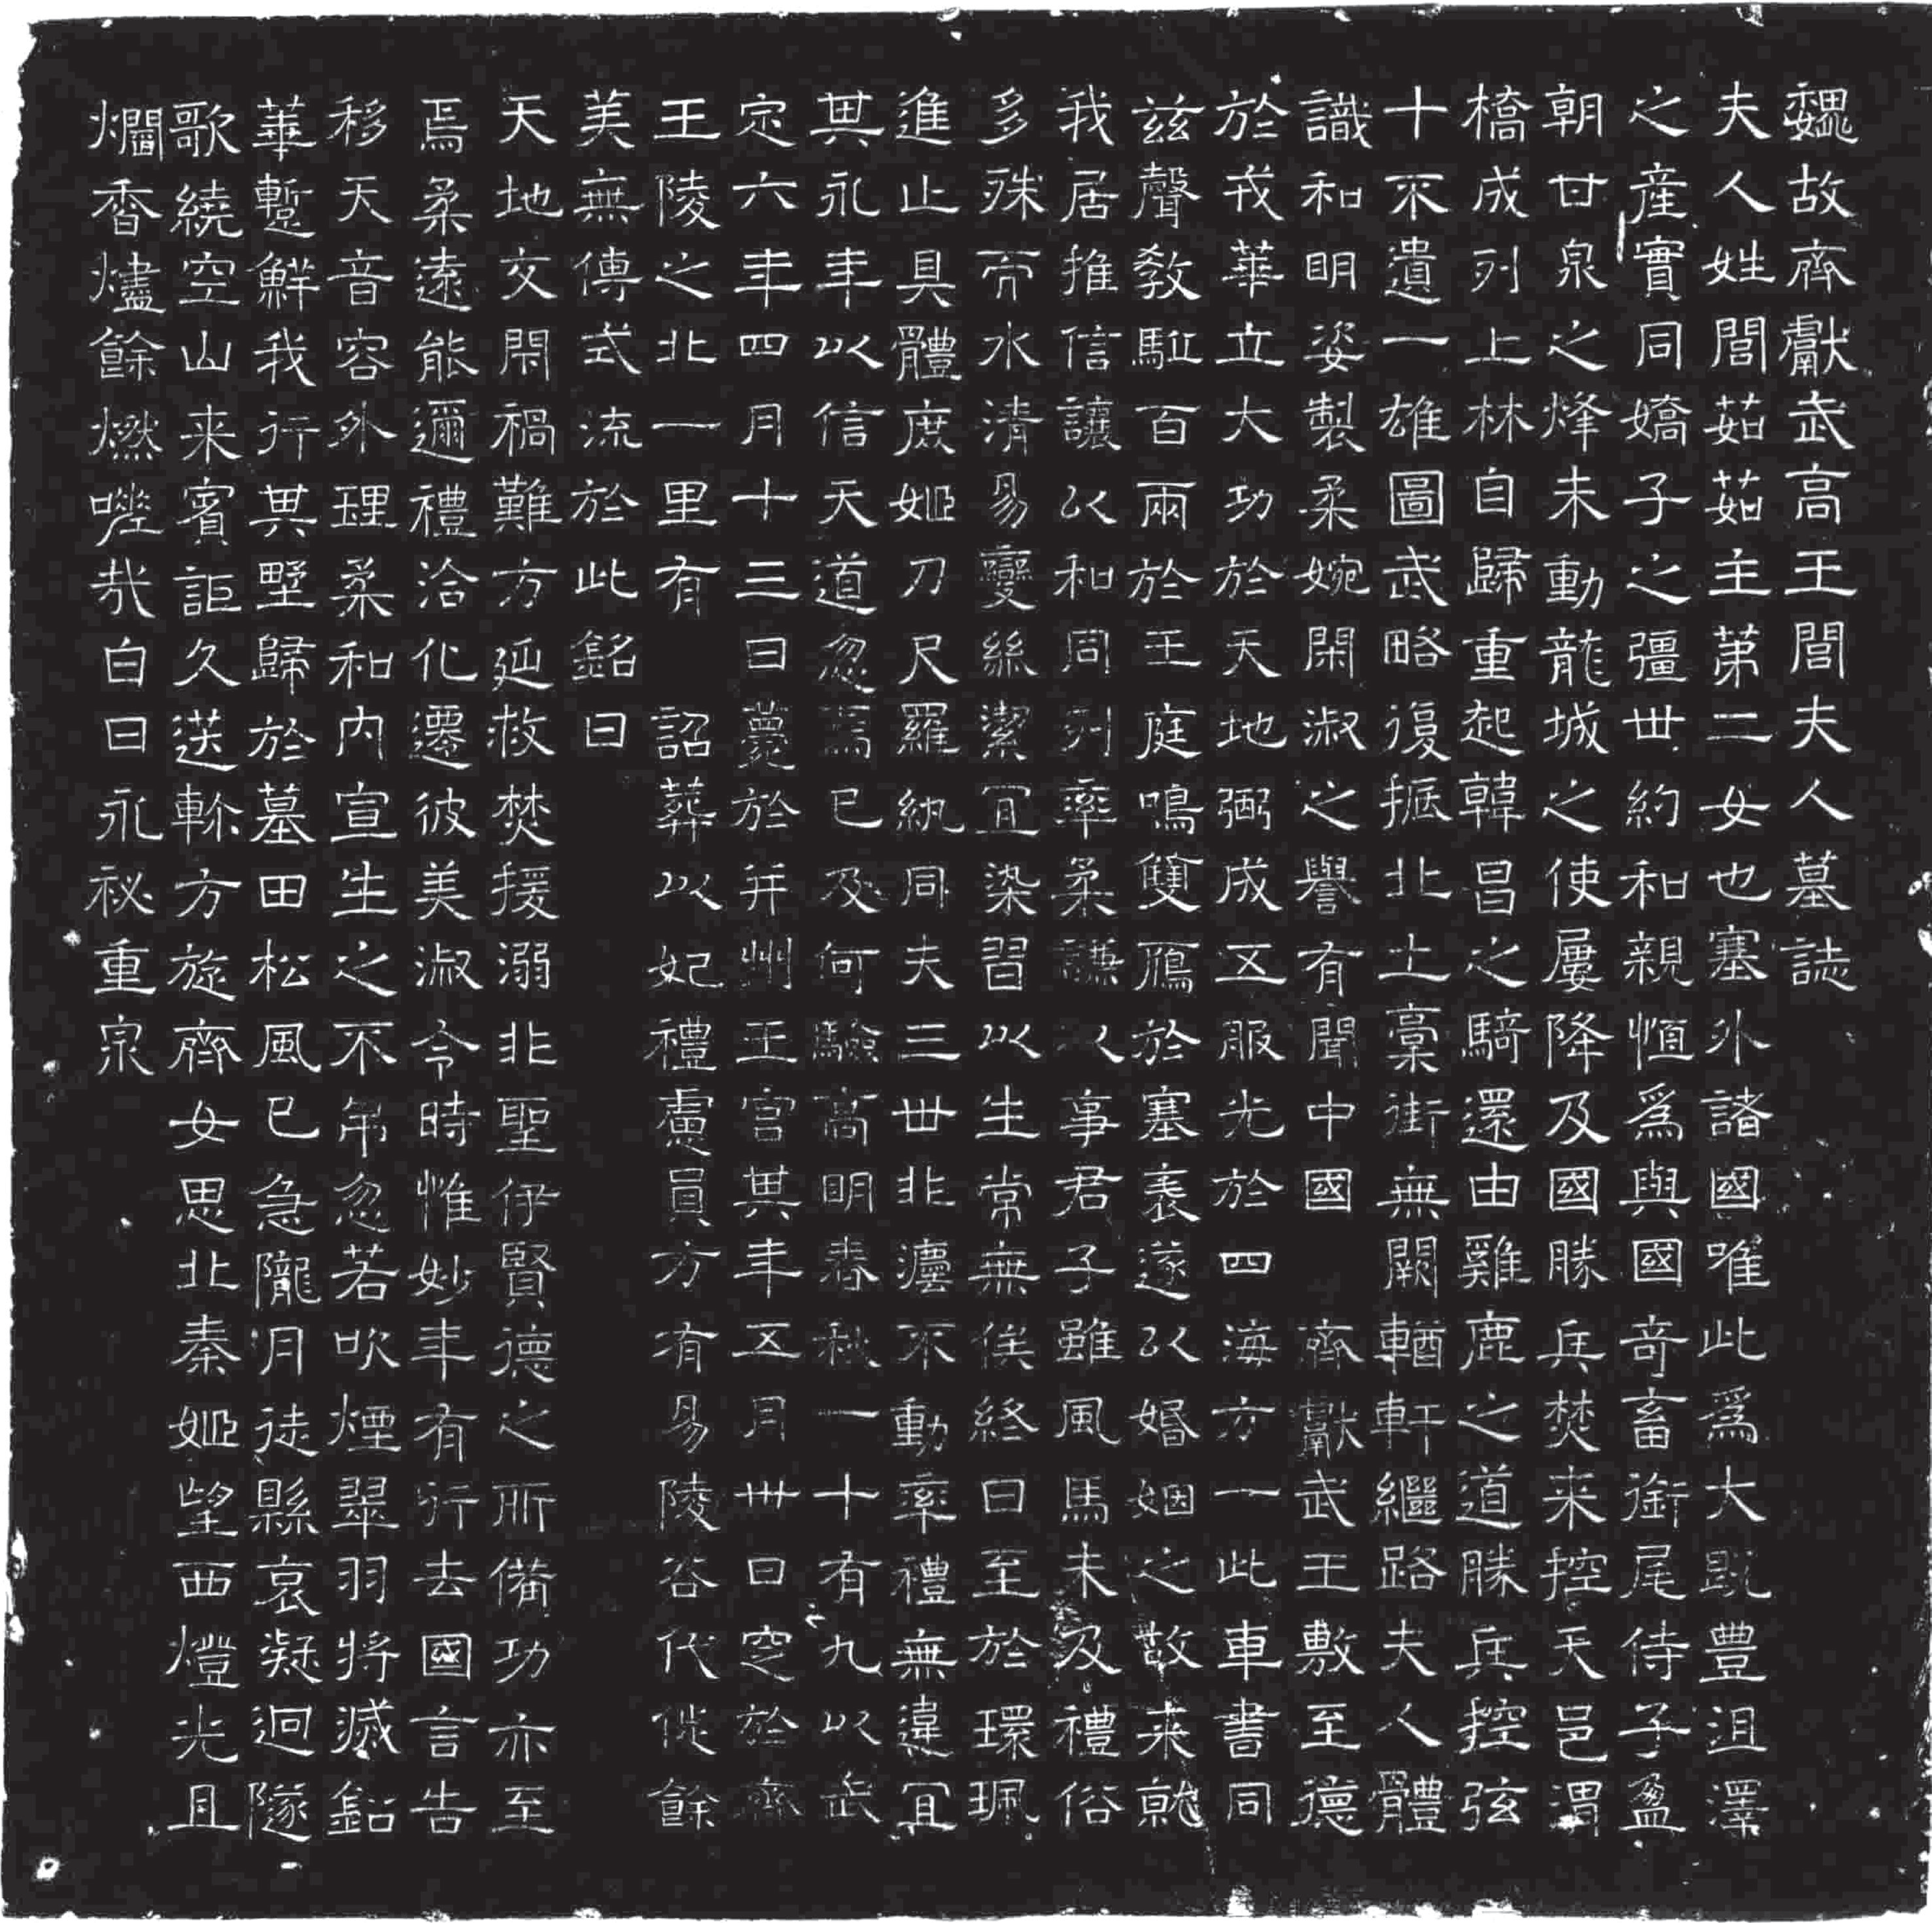 魏故齊獻武高王閭夫人墓誌
夫人姓閭茹茹主第二女也塞外諸國唯此爲大既豐沮澤
之産實同嬌子之彊世約和親恒爲與國奇畜銜尾侍子盈
朝甘泉之烽未動龍城之使屢降及國勝兵焚来控天邑渭
橋成列上林自歸重起韓昌之騎還由雞鹿之道勝兵控弦
十不遺一雄圖武略復振北土藁街無闕輶軒繼路夫人體
識和明姿製柔婉閑淑之譽有聞中國齊獻武王敷至德
於戎華立大功於天地弼成五服光於四海方一此車書同
兹聲教駈百兩於王庭鳴雙鴈於塞表遂以婚姻之故来就
我居推信讓以和同列率柔謙以事君子雖風馬未及禮俗
多殊而水清易變絲潔宜染習以生常無俟終日至於環珮
進止具體庶姬刀尺羅紈同夫三世非瘗不動率禮無違宜
其永年以信天道忽焉已及何驗高明春秋一十有九以武
定六年四月十三日薨於并州王宫其年五月卅日窆於齊
王陵之北一里有詔葬以妃禮慮員方有易陵谷代徙餘
美無傳式流於此銘曰
天地交閇禍難方延救焚援溺非聖伊賢德之所備功亦至
焉柔遠能邇禮洽化遷彼美淑令時惟妙年有行去國言告
移天音容外理柔和内宣生之不弔忽若吹煙翠羽將滅鉛
華蹔鮮我行其墅歸於墓田松風已急隴月徒縣哀凝迥隧
歌繞空山来賓詎久送輀方旋齊女思北秦姬望西燈光且
爛香燼餘燃嗟哉白日永祕重泉